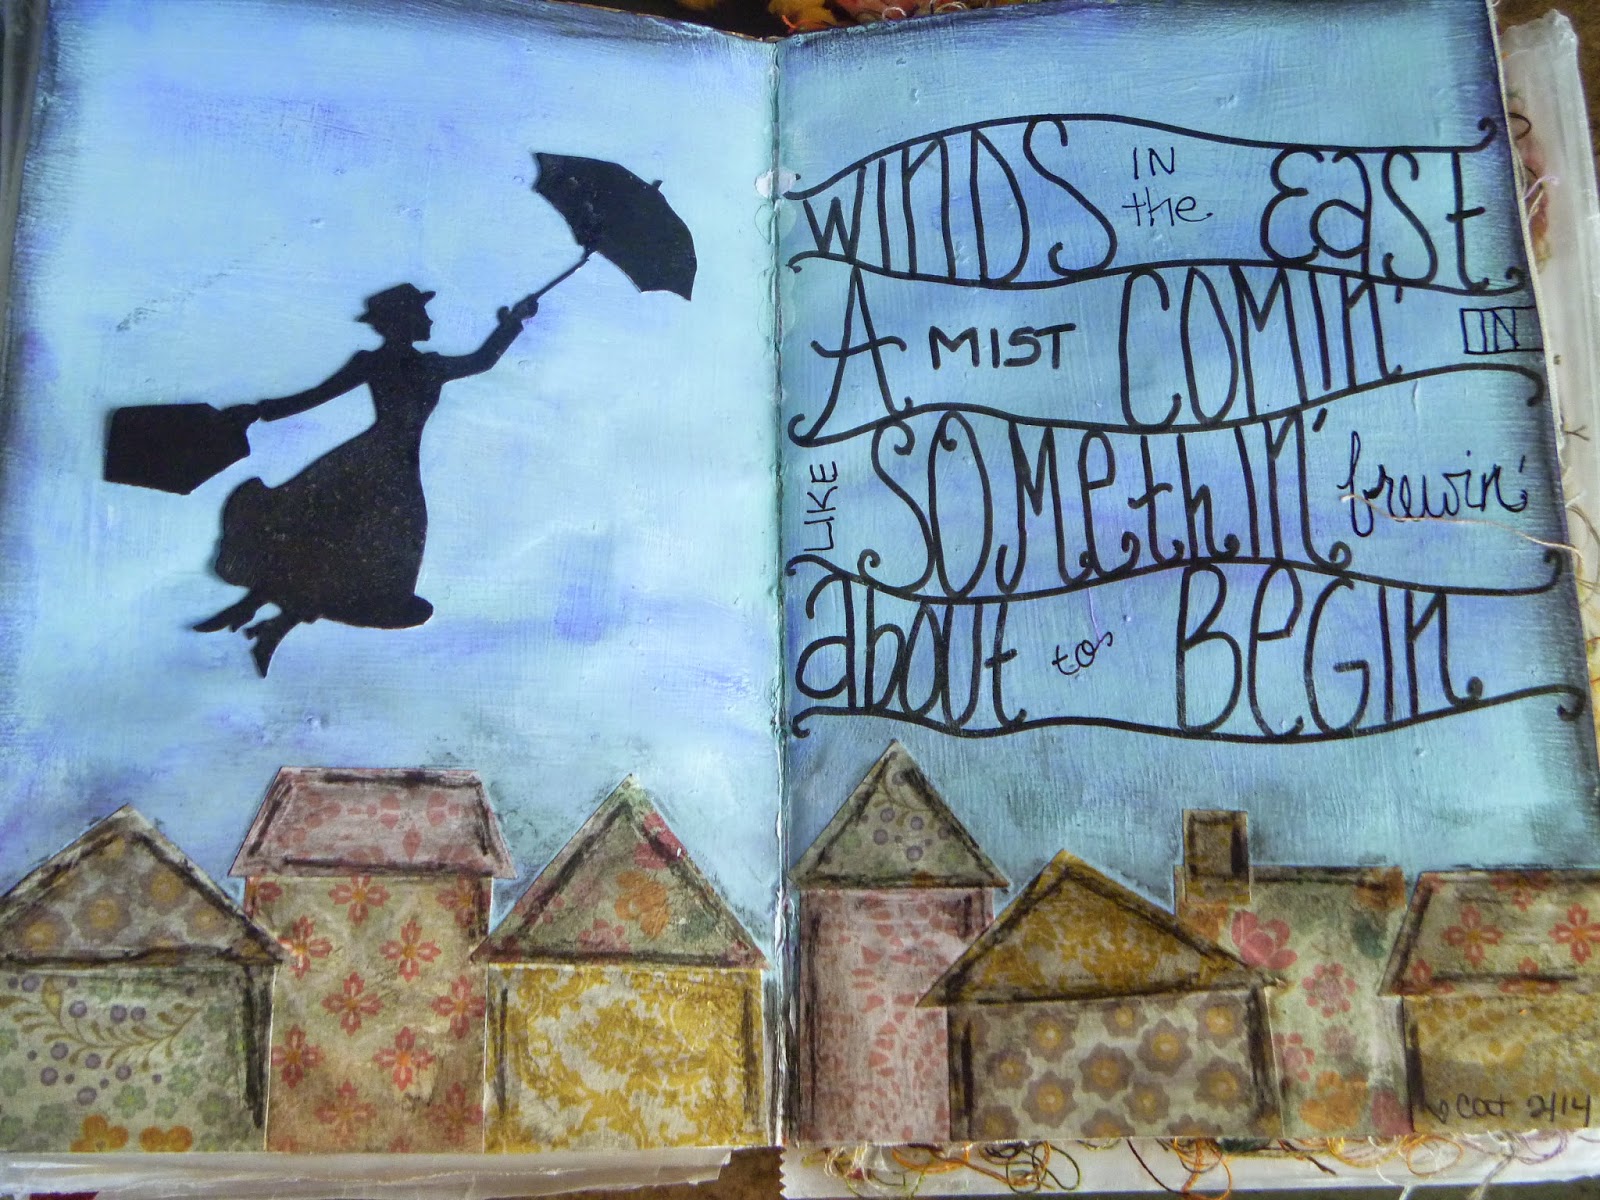 WInDS IN the EaST
A MIST COMIn' IN
LIKE SOMethIn' brewin'
about to BeGIn
Cat 2/14